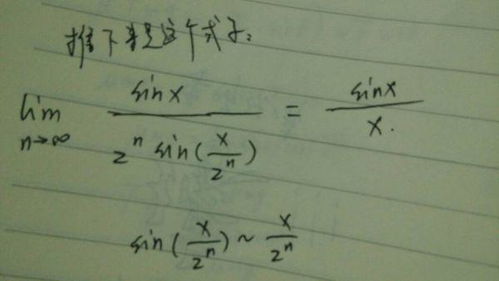 推下来是这个式子:
lim n→∞ sinx / 2^n sin(x/2^n) = sinx / x.
sin(x/2^n) ~ x/2^n